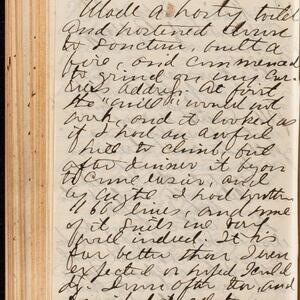 Made a hasty toilet
and hastened down
to sanctum, built a
fire, and commenced
to grind on my Car-
riers Address. At first
the "mill" would not
work, and it looked as
if I had an awful
hill to climb, but
after dinner it began
to come easier, and
by night I had written
460 lines, and some
of it suits me very
well indeed. It is
far better than I even
expected or hoped I could
do. Down after tea, and